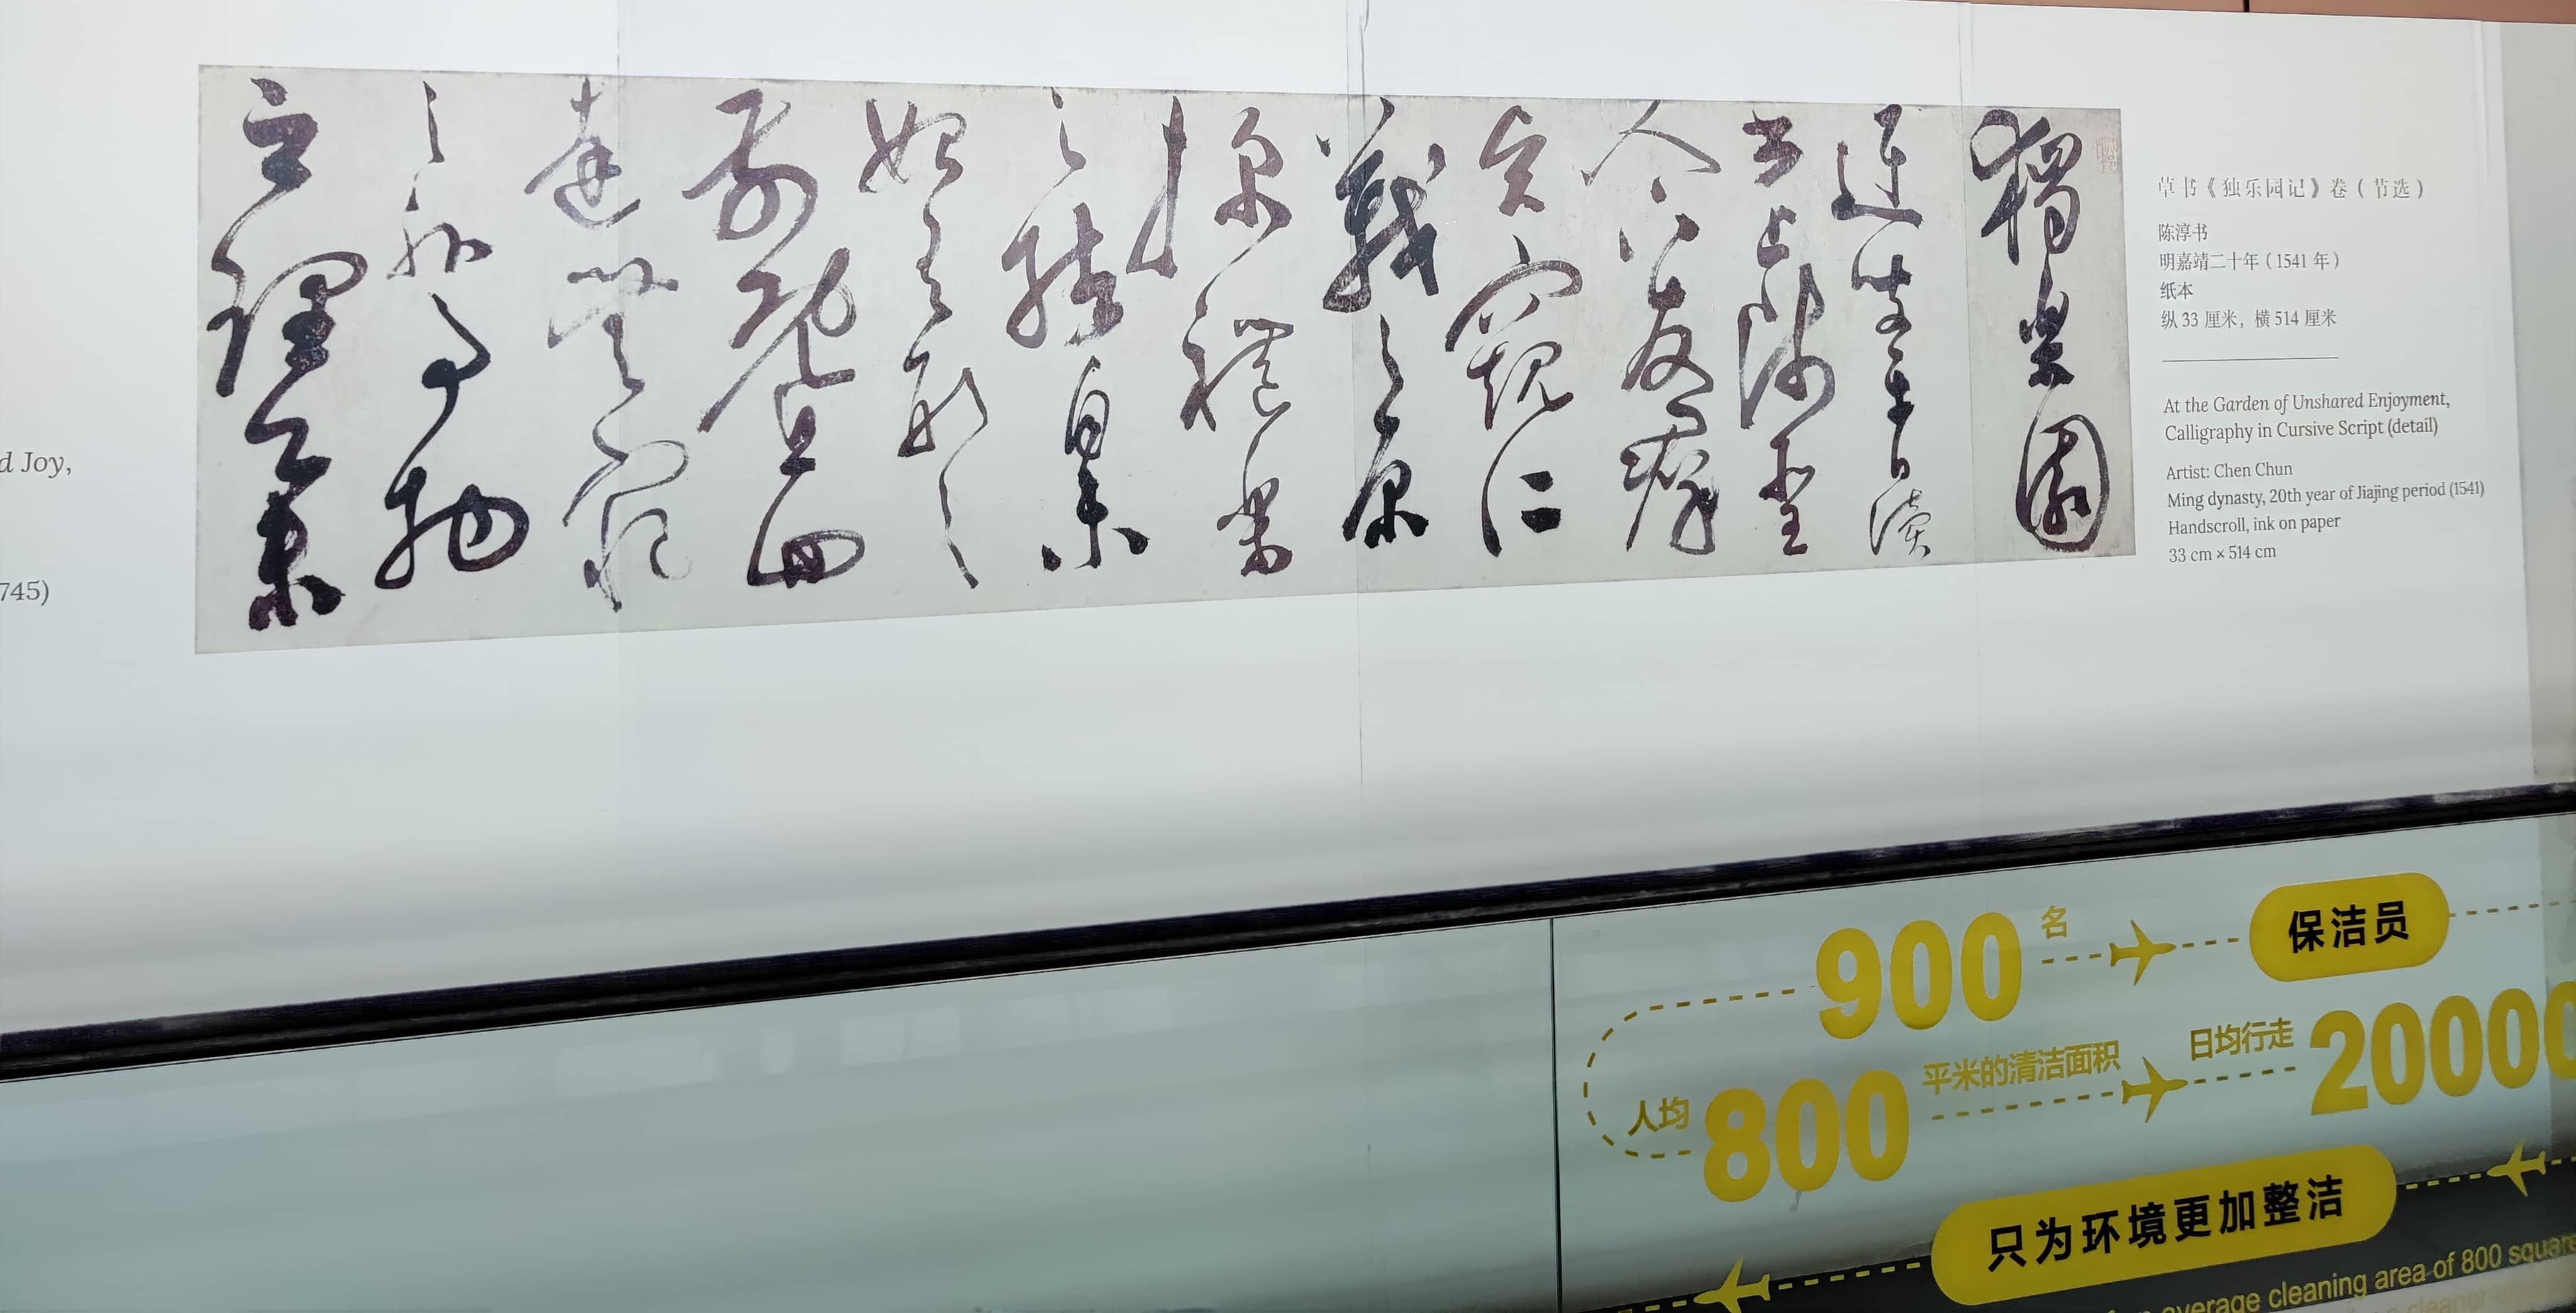 獨樂園
迂叟平日讀
書上師聖
人下友羣
賢窺仁
義之原
探禮樂
之緒自未
始有形之
前暨四
達無窮
之外事物
之理舉集
草书《独乐园记》卷（节选）
陈淳书
明嘉靖二十年（1541 年）
纸本
纵 33 厘米，横 514 厘米
At the Garden of Unshared Enjoyment,
Calligraphy in Cursive Script (detail)
Artist: Chen Chun
Ming dynasty, 20th year of Jiajing period (1541)
Handscroll, ink on paper
33 cm × 514 cm
d Joy,
745)
900 名 保洁员
人均 800 平米的清洁面积 日均行走 20000
只为环境更加整洁
average cleaning area of 800 square